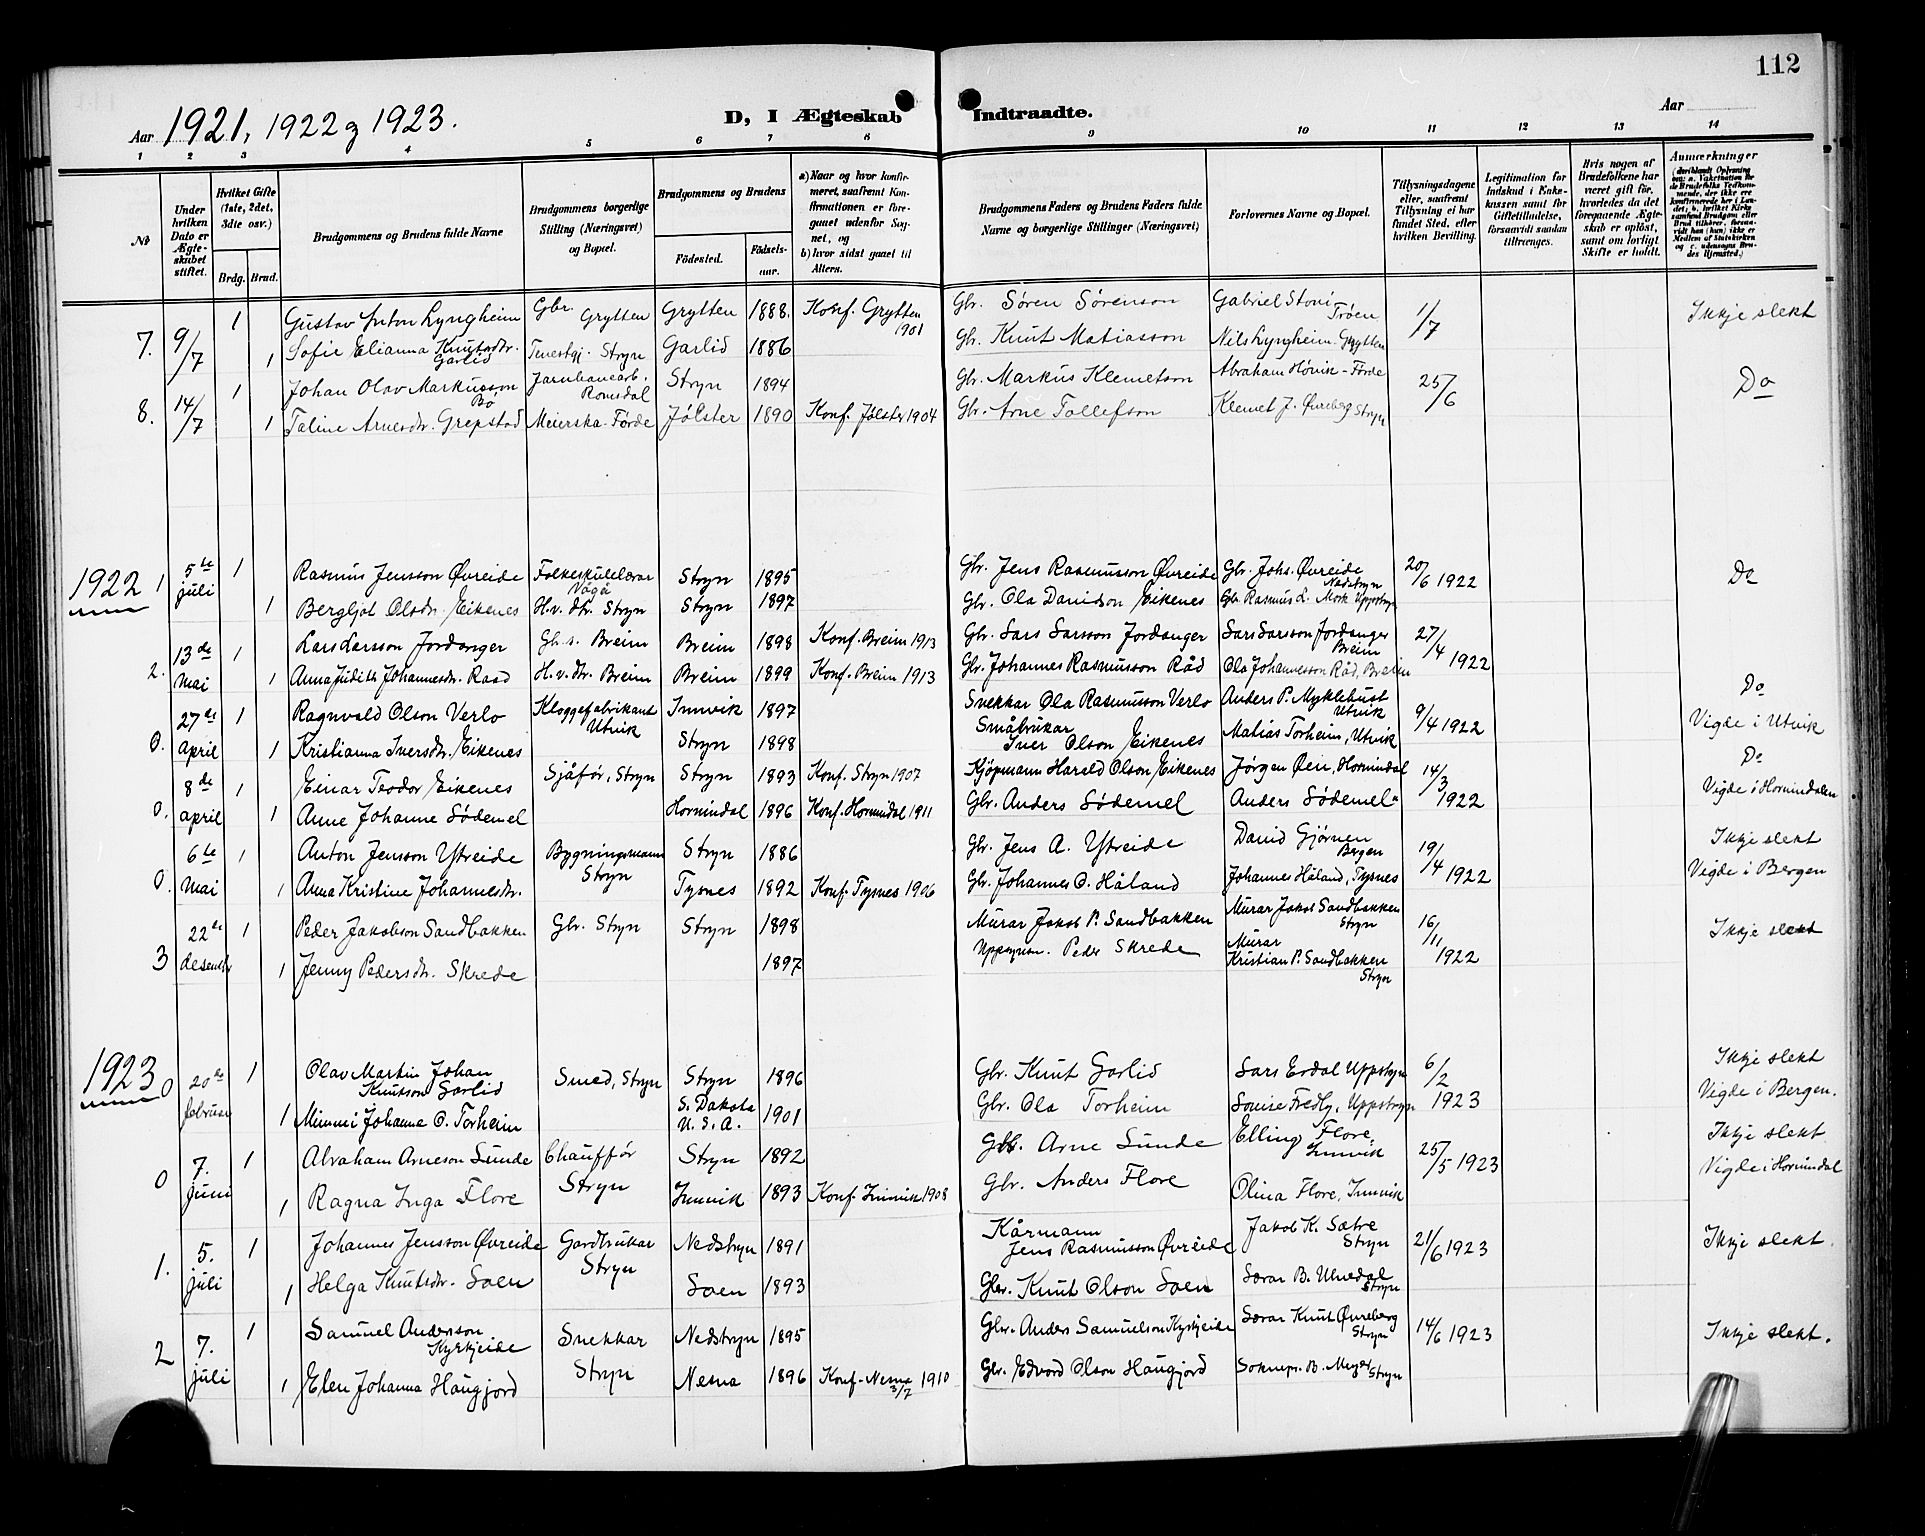 112
Aar 1921, 1922 og 1923.
D, I Ægteskab Indtraadte.
Aar
1 2 3 4 5 6 7 8 9 10 11 12 13 14
№
Under hvilken Dato er Ægteskabet stiftet.
Hvilket Gifte (1ste, 2det, 3die osv.)
Brdg. Brud.
Brudgommens og Brudens fulde Navne
Brudgommens borgerlige Stilling (Næringsvei) og Bopæl.
Brudgommens og Brudens
Födested.
Födselsaar.
a) Naar og hvor konfirmeret, saafremt Konfirmationen er foregaaet udenfor Sognet, og
b) hvor sidst gaaet til Alters.
Brudgommens Faders og Brudens Faders fulde Navne og borgerlige Stillinger (Næringsvei)
Forlovernes Navne og Bopæl.
Tillysningsdagene eller, saafremt Tillysning ei har fundet Sted, efter hvilken Bevilling.
Legitimation for Indskud i Enkekassen samt for Giftetilladelse, forsaavidt saadan tiltrænges.
Hvis nogen af Brudefolkene har været gift før, hvorledes da det foregaaende Ægteskab er opløst, samt om lovligt Skifte er holdt.
Anmærkninger
7. 9/7 1 Gustav Anton Lyngheim Gbr. Grytten Grytten 1888. Konf. Grytten 1901 Gbr. Søren Sørenson Gabriel Stavi Trøen 1/7 Ikkje slekt
1 Sofie Elianna Knutsdtr. Garlid Tenestgj. Stryn Garlid 1886 Gbr. Knut Matiasson Nils Lyngheim Grytten
8. 14/7 1 Johan Olav Markusson Bø Jarnbanearb. Romsdal Stryn 1894 Gbr. Markus Klemetson Abraham Høvik - Førde 25/6 Do
1 Taline Arnesdtr. Grepstad Meierska. Førde Jølster 1890 Konf. Jølster 1904 Gbr. Arne Tollefson Klemet J. Øvreberg Stryn
1922 1 5te juli 1 Rasmus Jensson Øvreide Folkeskulelærar Vågå Stryn 1895 Gbr. Jens Rasmusson Øvreide Gbr. Johs. Øvreide Nedstryn 20/6 1922 Do
1 Bergljot Olsdtr. Eikenes H.v. dtr. Stryn Stryn 1897 Gbr. Ola Danielson Eikenes Gbr. Rasmus L. Mork Uppstryn
2. 13de mai 1 Lars Larsson Jordanger Gb.s. Breim Breim 1898 Konf. Breim 1913 Gbr. Lars Larsson Jordanger Lars Larsson Jordanger Breim 27/4 1922
1 Anna Judith Johannesdtr. Raad H.v. dtr. Breim Breim 1899 Konf. Breim 1913 Gbr. Johannes Rasmusson Råd Ola Johannesson Råd, Breim
0. 27de april 1 Ragnvald Olson Verlo Kloggefabrikant Utvik Innvik 1897 Snekkar Ola Rasmusson Verlo Anders P. Myklebust Utvik 9/4 1922 Do
1 Kristianna Iversdtr. Eikenes Stryn 1898 Småbrukar Iver Olson Eikenes Matias Torheim, Utvik Vigde i Utvik
0. 8de april 1 Einar Teodor Eikenes Sjåför, Stryn Stryn 1893 Konf. Stryn 1907 Kjøpmann Harald Olson Eikenes Jørgen Øen, Hornindal 14/3 1922 Do
1 Anne Johanne Sødemel Hornindal 1896 Konf. Hornindal 1911 Gbr. Anders Sødemel Anders Sødemel " Vigde i Hornindalen
0. 6te mai 1 Anton Jensson Ytreide Bygningsmann Stryn Stryn 1886 Gbr. Jens A. Ytreide David Gjørven Bergen 19/4 1922 Ikkje slekt
1 Anna Kristine Johannesdtr. Tysnes 1892 Konf. Tysnes 1906 Gbr. Johannes O. Håland Johannes Håland, Tysnes Vigde i Bergen
3 22de desember 1 Peder Jakobson Sandbakken Gbr. Stryn Stryn 1898 Murar Jakob P. Sandbakken Murar Jakob Sandbakken Stryn 16/11 1922 Ikkje slekt
1 Jenny Pedersdtr. Skrede 1897 Uppsynsm. Peder Skrede Murar Kristian P. Sandbakken Stryn
1923 0 20de februar 1 Olav Martin Johan Knutson Garlid Smed, Stryn Stryn 1896 Gbr. Knut Garlid Lars Erdal Uppstryn 6/2 1923 Ikkje slekt
1 Minni Johanne O. Torheim S. Dakota U.S.A. 1901 Gbr. Ola Torheim Louise Fredly, Uppstryn Vigde i Bergen.
0 7. juni 1 Abraham Arneson Sunde Chauffør Stryn Stryn 1892 Gbr. Arne Sunde Elling Flore, Innvik 25/5 1923 Ikkje slekt
1 Ragna Inga Flore Innvik 1893 Konf. Innvik 1908 Gbr. Anders Flore Olina Flore, Innvik Vigde i Hornindal
1. 5. juli 1 Johannes Jensson Øvreide Gardbrukar Stryn Nedstryn 1891 Kårmann Jens Rasmusson Øvreide Jakob K. Sætre Stryn 21/6 1923 Ikkje slekt.
1 Helga Knutsdtr. Loen Loen 1893 Gbr. Knut Olson Loen Lærar B. Ulvedal Stryn
2 7. juli 1 Samuel Anderson Kyrkjeide Snekkar Stryn Nedstryn 1895 Gbr. Anders Samuelson Kyrkjeide Lærar Knut Øvreberg Stryn 14/6 1923 Ikkje slekt.
1 Elen Johanna Haugjord Nesna 1896 Konf. Nesna 3/7 1910 Gbr. Edvard Olson Haugjord Soknepr. B. Meyer Stryn